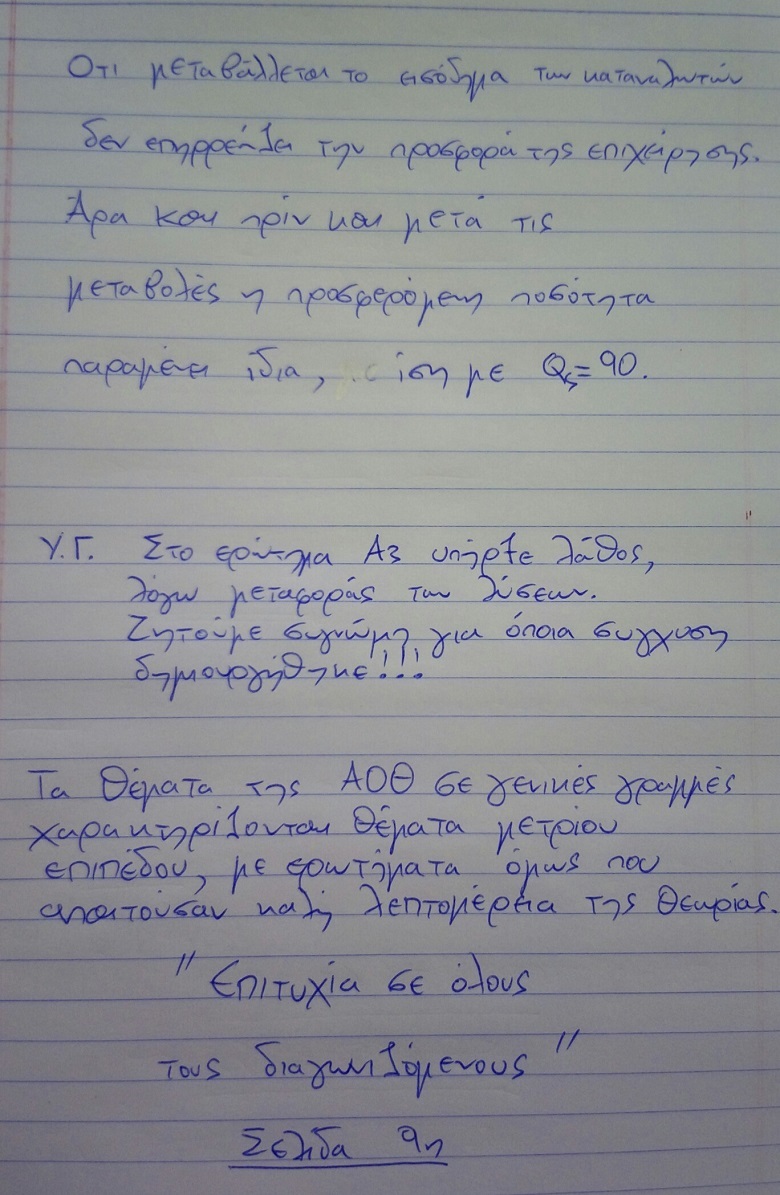 Οτι μεταβάλλεται το εισόδημα των καταναλωτών
δεν επηρρεάζει την προσφορά της επιχείρησης.
Άρα και πρίν και μετά τις
μεταβολές η προσφερόμενη ποσότητα
παραμένει ίδια, ίση με Qs=90.
Υ.Γ. Στο ερώτημα Α3 υπήρξε λάθος,
λόγω μεταφοράς των λύσεων.
Ζητούμε συγνώμη για όποια συγχυση
δημιουργήθηκε!!!
Τα Θέματα της ΑΟΘ σε γενικές γραμμές
χαρακτηρίζονται Θέματα μετρίου
επιπέδου, με ερωτήματα όμως που
απαιτούσαν καλή λεπτομέρεια της Θεωρίας.
"Επιτυχία σε όλους
τους διαγωνιζόμενους"
Σελίδα 9η